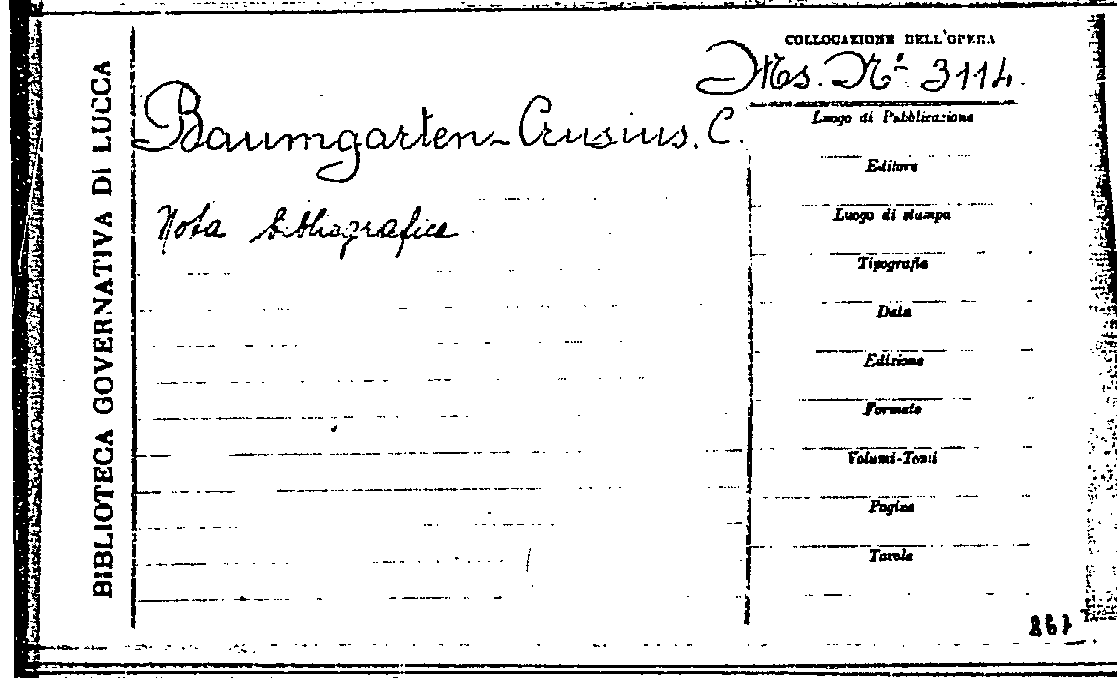 BIBLIOTECA GOVERNATIVA DI LUCCA
COLLOCAZIONE DELL'OPERA
Ms. Nº 3114.
Baumgarten-Crusius, C.
Nota bibliografica
Luogo di Pubblicazione
Editore
Luogo di stampa
Tipografia
Data
Edizione
Formato
Volumi-Tomi
Pagine
Tavole